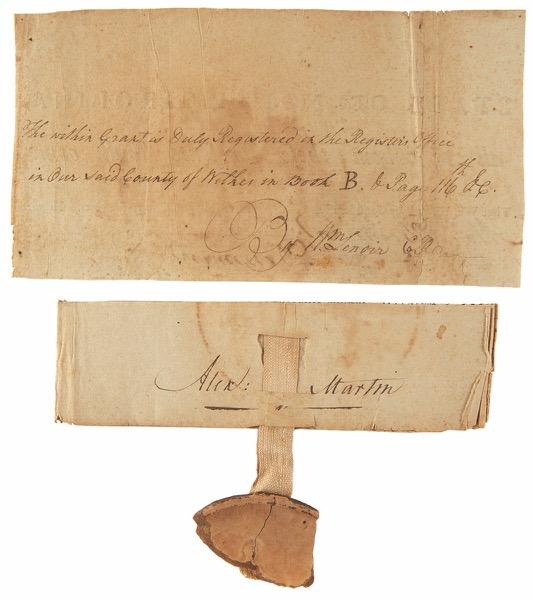 The within Grant is Duly Registered in the Registers Office
in Our said County of Wilkes in Book B. & Page 116th &C.
By Wm Lenoir
Alex: Martin